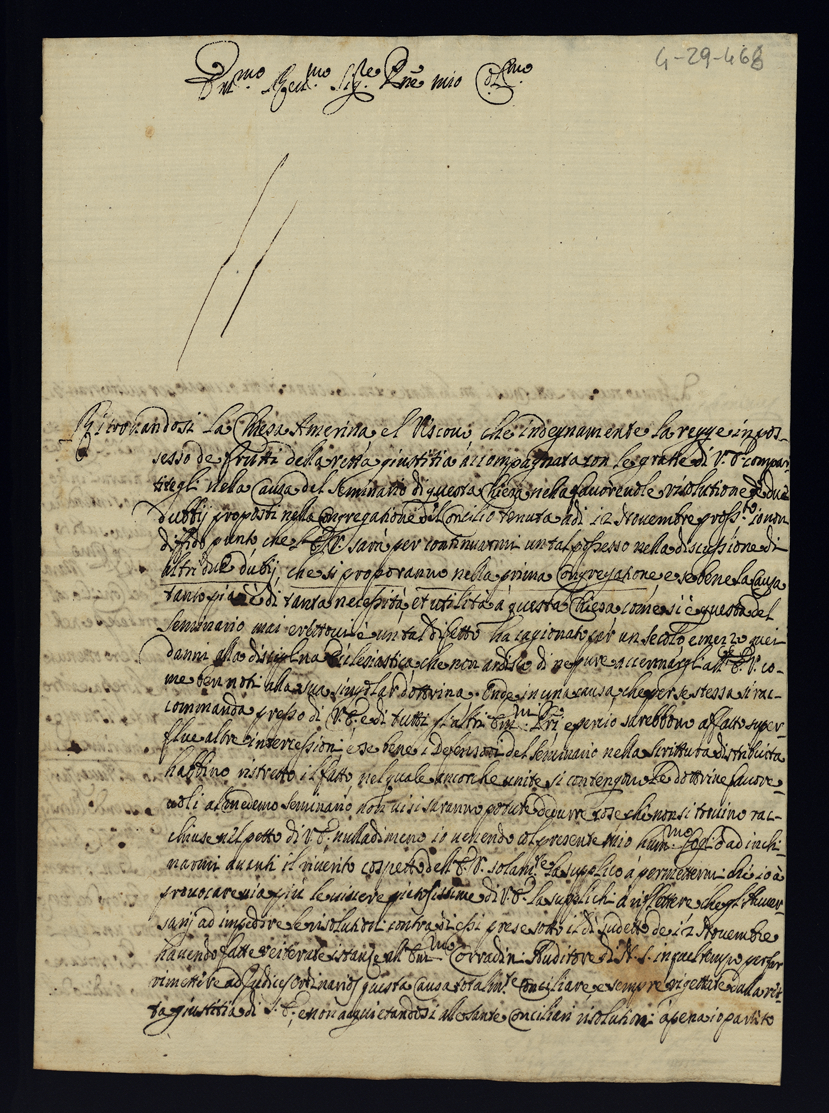 4-29-468
Em.mo Rev.mo Sig.re Pñe mio Col.mo
Ritrovandosi la Chiesa Amerina, e'l Vescovo, che indegnamente la regge in pos-
sesso de frutti della retta giustitia accompagnata con le gratie di V. E. compar-
titegli nella Causa del Seminario di questa Chiesa nella favorevole risolutione de due
Dubbij proposti nella Congregatione del Concilio tenuta a di 12 Novembre pross.to io non
diffido punto che l'E. V. sarà per continuarmi un tal possesso nella discussione di
altri due dubij, che si proporanno nella prima Congregatione e se bene la Causa
tanto pia, è di tanta necessità, et utilità à questa Chiesa com'e si è questa del
Seminario mai eretto un tal difetto ha cagionato per un secolo e mezzo quei
danni alla disciplina Ecclesiastica che non ardisco di ne pure accennargli all' E. V. co-
me ben noti alla sua singolar dottrina. Onde in una causa, che per se stessa si rac-
commanda presso di V. E. e di tutti gl'altri Em.mi Pñi e perciò sarebbono affatto super-
flue altre intercessioni, e se bene i Defensori del Seminario nella Scrittura distribuita
habbino ristretto il fatto nel quale ancorche unite si contengano le dottrine favore-
voli al medemo Seminario non vi si saranno potute dedurre cose che non si trovino rac-
chiuse nel petto di V. E. nulladimeno io venendo col presente mio hum.mo fogl. ad inchi-
narmi avanti il riverito cospetto dell' E. V. solam.te la supplico à permettermi che io à
provocare via più le viscere pietosissime di V. E. la supplichi à riflettere che gl'Aver-
sarij ad impedire le risolutioni contra di essi prese sotto il di sudetto de 12 Novembre
havendo fatte reiterate istanze all' Em.mo Corradini Auditore di N. S. in quel tempo per far
rimettere ad Iudices Ordinarios questa causa totalm.te Conciliare e sempre rigettate dalla ret-
ta giustitia di S. E., e non acquietandosi alle Sante Conciliari risolutioni apena io partito